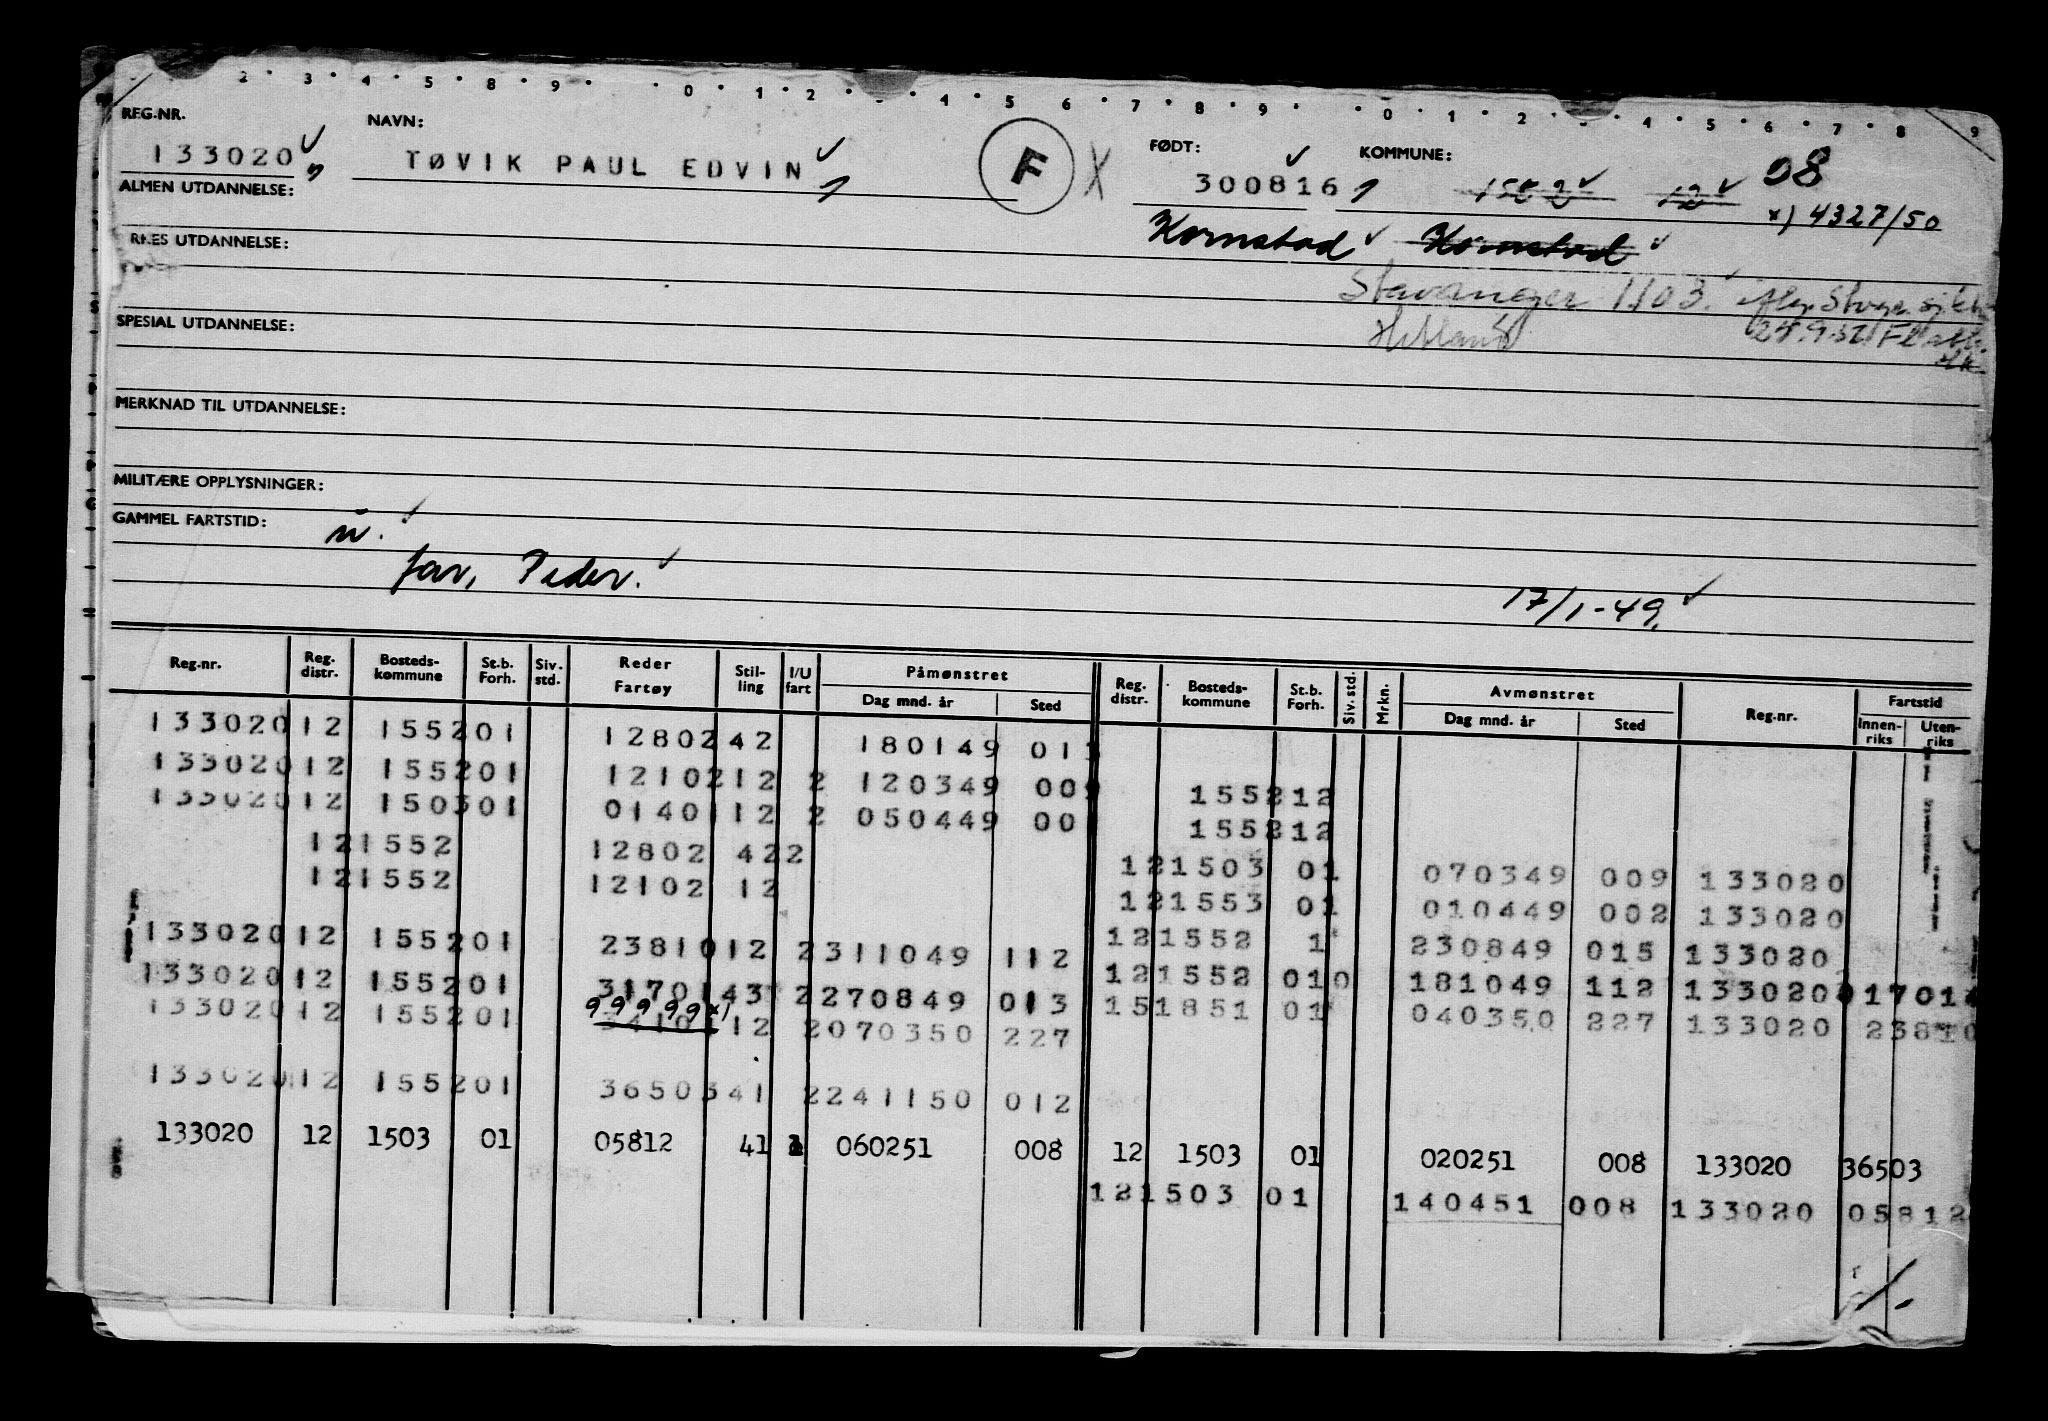 2 3 4 5 8 9 0 1 2 4 5 6 7 8 9 0 1 2 4 5 6 7 8 9
REG.NR. NAVN: FØDT: KOMMUNE:
133020 TØVIK PAUL EDVIN F X 300816 1552 12 08
x) 4327/50
ALMEN UTDANNELSE:
Kornstad Kornstad
RKES UTDANNELSE:
Stavanger 1103.
Hetland
SPESIAL UTDANNELSE:
MERKNAD TIL UTDANNELSE:
MILITÆRE OPPLYSNINGER:
GAMMEL FARTSTID:
u.
far, Peder. 17/1-49.
Reg.nr. Reg. distr. Bosteds-kommune St.b. Forh. Siv. std. Reder Fartøy Stil-ling I/U fart Påmønstret Dag mnd. år Sted Reg. distr. Bosteds-kommune St.b. Forh. Siv. std. Mrkn. Avmønstret Dag mnd. år Sted Reg.nr. Fartstid Innen-riks Uten-riks
133020 12 1552 01 12802 42 180149 013
133020 12 1552 01 12102 12 2 120349 009 1552 12
133020 12 1503 01 01401 12 2 050449 00 1552 12
12 1552 12802 42 2 12 1503 01 070349 009 133020
12 1552 12102 12 12 1553 01 010449 002 133020
133020 12 1552 01 23810 12 2 311049 112 12 1552 1 230849 015 133020
133020 12 1552 01 31701 43 2 270849 013 12 1552 01 0 181049 112 133020 1701
99999 x)
133020 12 1552 01 34101 12 2 070350 227 15 1851 01 040350 227 133020 23810
133020 12 1552 01 36503 41 2 241150 012
133020 12 1503 01 05812 41 060251 008 12 1503 01 020251 008 133020 36503
12 1503 01 140451 008 133020 05812